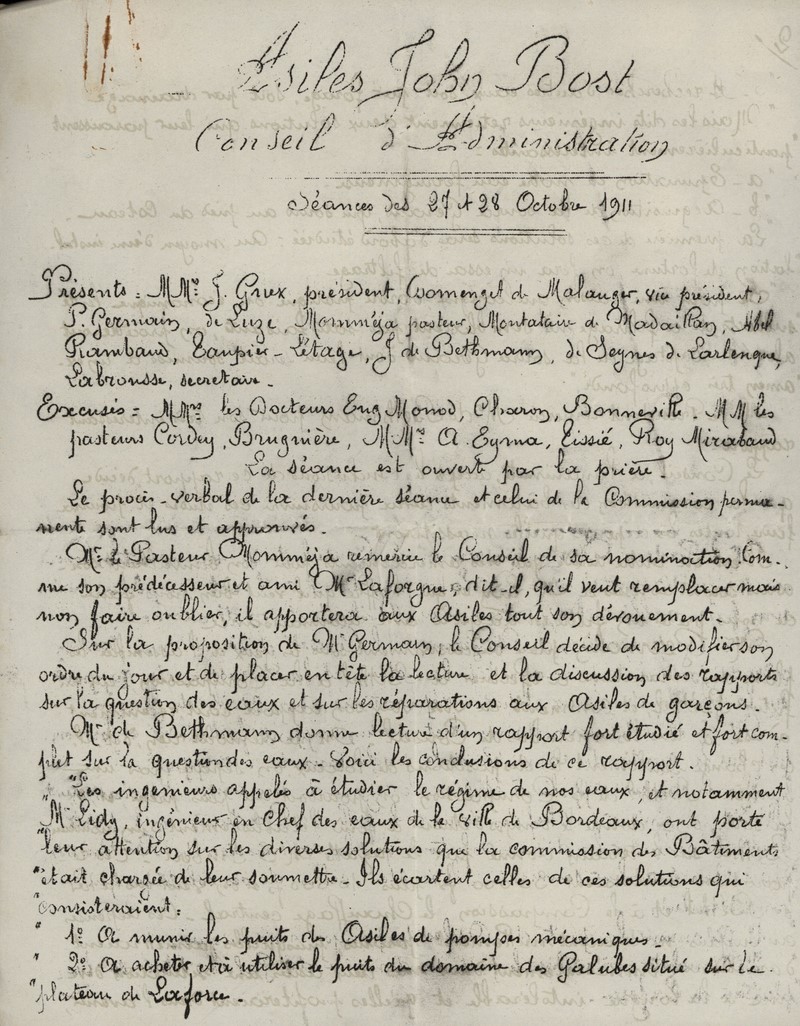 Asiles John Bost
Conseil d'Administration
Séances des 27 et 28 Octobre 1911
Présents = MMrs J. Grux, président, Comenget de Malauger, vice président,
P. Germain, de Luze, Momméja pasteur, Montataire de Madaillan, Abel
Rambaud, Taupier-Létage, J de Bethmann, de Seynes de Larlenque,
Labrousse, secretaire.
Excusés = MMrs les Docteurs Eug Monod, Charon, Bonneville. MM les
pasteurs Cordey, Brugnière, MMrs A. Eyma, Tissié, Roy Mirabaud
La séance est ouvert par la prière.
Le procès-verbal de la dernière séance et celui de la Commission perma-
nente sont lus et approuvés.
Mr le Pasteur Momméja remercie le Conseil de sa nomination. Com-
me son prédécesseur et ami Mr Laforgue, dit-il, qu'il veut remplacer mais
non faire oublier, il apportera aux Asiles tout son dévouement.
Sur la proposition de Mr Germain, le Conseil décide de modifier son
ordre du jour et de placer en tête la lecture et la discussion des rapports
sur la question des eaux et sur les réparations aux Asiles de garçons.
Mr de Bethmann donne lecture d'un rapport fort étudié et fort com-
plet sur la question des eaux. Voici les conclusions de ce rapport.
"Les ingénieurs appelés à étudier le régime de nos eaux, et notamment
"Mr Lidy, ingénieur en Chef des eaux de la Ville de Bordeaux, ont porté
"leur attention sur les diverses solutions que la commission des Bâtiments
"était chargée de leur soumettre. Ils écartent celles de ces solutions qui
"consisteraient :
" 1º A munir les puits des Asiles de pompes mécaniques.
" 2º A acheter et à utiliser le puits du domaine des Galubes situé sur le
"plateau de Laforce.